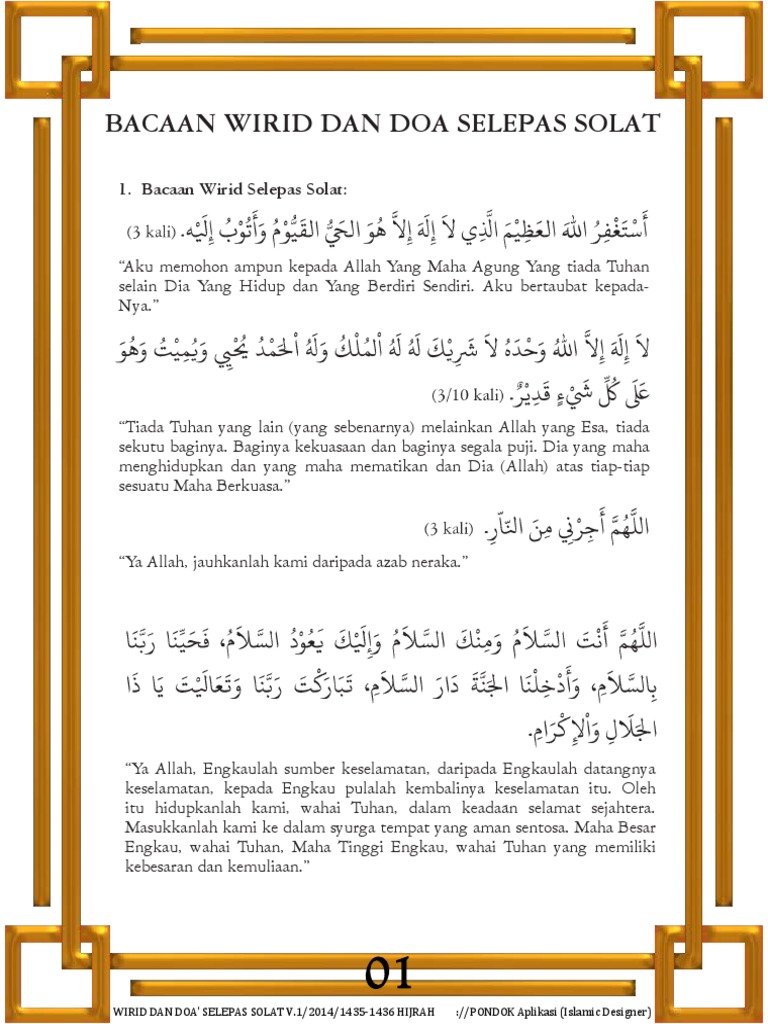 BACAAN WIRID DAN DOA SELEPAS SOLAT
1. Bacaan Wirid Selepas Solat:
أَسْتَغْفِرُ اللهَ العَظِيْمَ الَّذِي لاَ إِلَهَ إِلاَّ هُوَ الحَيُّ القَيُّوْمُ وَأَتُوْبُ إِلَيْه. (3 kali)
“Aku memohon ampun kepada Allah Yang Maha Agung Yang tiada Tuhan
selain Dia Yang Hidup dan Yang Berdiri Sendiri. Aku bertaubat kepada-
Nya.”
لاَ إِلَهَ إِلاَّ اللهُ وَحْدَهُ لاَ شَرِيْكَ لَهُ لَهُ اْلمُلْكُ وَلَهُ اْلحَمْدُ يُحْيِي وَيُمِيْتُ وَهُوَ
عَلَى كُلِّ شَيْءٍ قَدِيْرٌ. (3/10 kali)
“Tiada Tuhan yang lain (yang sebenarnya) melainkan Allah yang Esa, tiada
sekutu baginya. Baginya kekuasaan dan baginya segala puji. Dia yang maha
menghidupkan dan yang maha mematikan dan Dia (Allah) atas tiap-tiap
sesuatu Maha Berkuasa.”
اللَّهُمَّ أَجِرْنِي مِنَ النَّارِ. (3 kali)
“Ya Allah, jauhkanlah kami daripada azab neraka.”
اللَّهُمَّ أَنْتَ السَّلاَمُ وَمِنْكَ السَّلاَمُ وَإِلَيْكَ يَعُوْدُ السَّلاَمُ، فَحَيِّنَا رَبَّنَا
بِالسَّلاَمِ، وَأَدْخِلْنَا الجَنَّةَ دَارَ السَّلاَمِ، تَبَارَكْتَ رَبَّنَا وَتَعَالَيْتَ يَا ذَا
الجَلَالِ وَاْلإِكْرَامِ.
“Ya Allah, Engkaulah sumber keselamatan, daripada Engkaulah datangnya
keselamatan, kepada Engkau pulalah kembalinya keselamatan itu. Oleh
itu hidupkanlah kami, wahai Tuhan, dalam keadaan selamat sejahtera.
Masukkanlah kami ke dalam syurga tempat yang aman sentosa. Maha Besar
Engkau, wahai Tuhan, Maha Tinggi Engkau, wahai Tuhan yang memiliki
kebesaran dan kemuliaan.”
01
WIRID DAN DOA' SELEPAS SOLAT V.1/2014/1435-1436 HIJRAH ://PONDOK Aplikasi (Islamic Designer)